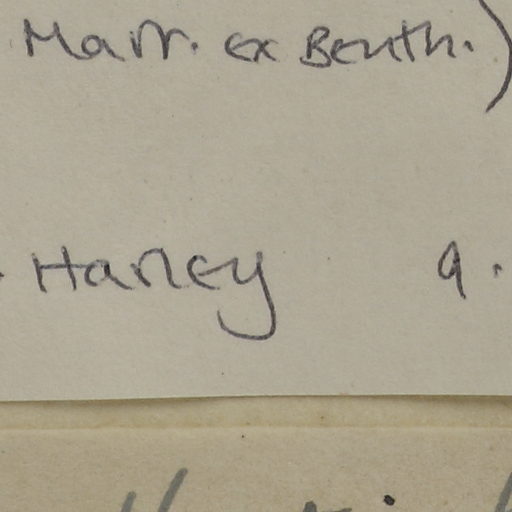 Marr. ex Benth.)
. Harley 9.